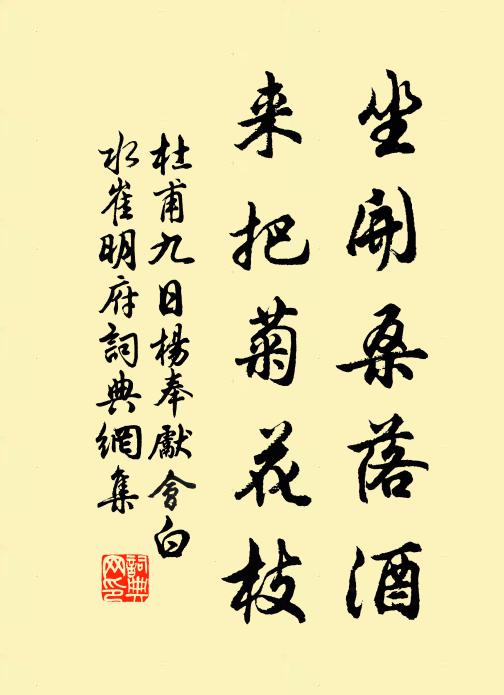 坐開桑落酒
来把菊花枝
杜甫九日楊奉獻會白
水崔明府詞典網集
詞典
网印